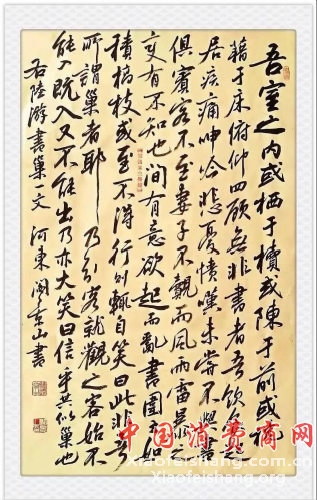 吾室之内或栖于椟或陈于前或枕
藉于床俯仰四顧無非書者吾饮食起
居疾痛呻吟悲憂憤嘆未尝不與書
俱賓客不至妻子不覿而風雨雷雹之
变有不知也间有意欲起而亂書围之如
積槁枝或至不得行则輒自笑曰此非吾
所謂巢者耶乃引客就觀之客始不
能入既入又不能出乃亦大笑曰信乎其似巢也
右陸游書巢一文 河東 山書
中国消费商网
Xiaofeishang.com.cn